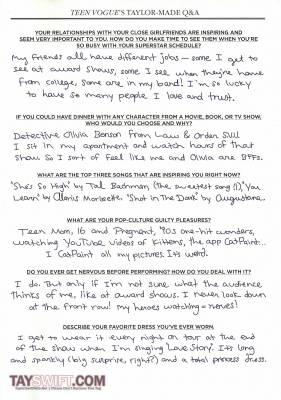 TEEN VOGUE'S TAYLOR-MADE Q&A
YOUR RELATIONSHIPS WITH YOUR CLOSE GIRLFRIENDS ARE INSPIRING AND
SEEM VERY IMPORTANT TO YOU. HOW DO YOU MAKE TIME TO SEE THEM WHEN YOU'RE
SO BUSY WITH YOUR SUPERSTAR SCHEDULE?
My friends all have different jobs — some I get to
see at award shows, some I see when they're home
from college, some are in my band! I'm so lucky
to have so many people I love and trust.
IF YOU COULD HAVE DINNER WITH ANY CHARACTER FROM A MOVIE, BOOK, OR TV SHOW,
WHO WOULD YOU CHOOSE AND WHY?
Detective Olivia Benson from Law & Order SVU
I sit in my apartment and watch hours of that
show so I sort of feel like me and Olivia are BFFs.
WHAT ARE THE TOP THREE SONGS THAT ARE INSPIRING YOU RIGHT NOW?
"She's so High" by Tal Bachman (the sweetest song!!), "You
Learn" by Alanis Morisette, "Shot in The Dark" by Augustana.
WHAT ARE YOUR POP-CULTURE GUILTY PLEASURES?
Teen Mom, 16 and Pregnant, '90s one-hit wonders,
watching YouTube videos of kittens, the app CatPaint...
I CatPaint all my pictures. It's weird.
DO YOU EVER GET NERVOUS BEFORE PERFORMING? HOW DO YOU DEAL WITH IT?
I do. But only if I'm not sure what the audience
thinks of me, like at award shows. I never look down
at the front row! my heros watching = nerves!
DESCRIBE YOUR FAVORITE DRESS YOU'VE EVER WORN.
I get to wear it every night on tour at the end
of the show when I'm singing "Love Story". It's long
and sparkly (big surprise, right?) and a total princess dress.
TAYSWIFT.COM